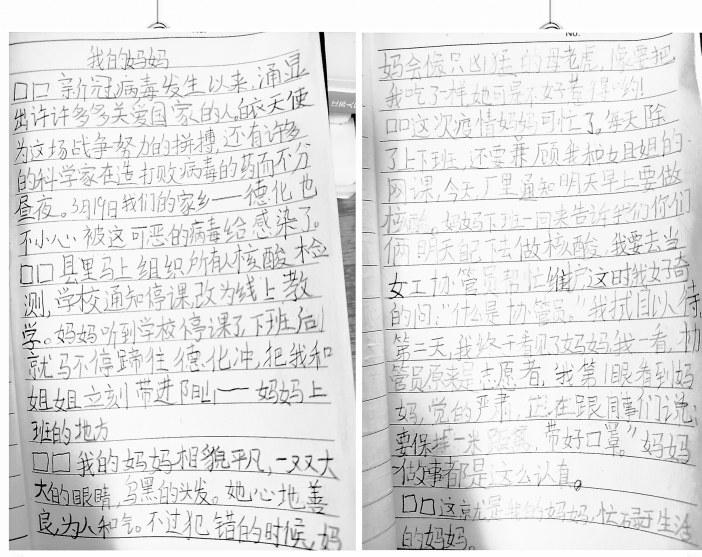 No.
我的妈妈
□□新冠病毒发生以来,涌显
出许许多多关爱国家的人。白衣天使
为这场战争努力的拼搏,还有许多
的科学家在造打败病毒的药而不分
昼夜。3月19日我们的家乡——德化也
不小心被这可恶的病毒给感染了。
□□县里马上组织所有人核酸检
测,学校通知停课改为线上教
学。妈妈听到学校停课了下班后
就马不停蹄往德化冲,把我和
姐姐立刻带进阳山——妈妈上
班的地方
□□我的妈妈相貌平凡,一双大
大的眼睛,乌黑的头发。她心地善
良,为人和气。不过犯错的时候,妈
妈会像只凶猛的母老虎,像要把
我吃了一样她可是不好惹得哟!
□□这次疫情妈妈可忙了。每天除
了上下班,还要兼顾我和姐姐的
网课,今天厂里通知明天早上要做
核酸。妈妈下班一回来告诉我们你们
俩明天自己下去做核酸,我要去当
女工协管员帮忙维护这时我好奇
的问:“什么是协管员。”我拭目以待,
第二天,我终于看见了妈妈我一看,协
管员原来是志愿者,我第一眼看到妈
妈,觉的严肃,正在跟同事们说:
要保持一米距离,带好口罩。”妈妈
做事都是这么认真。
□□这就是我的妈妈,忙碌于生活
的妈妈。